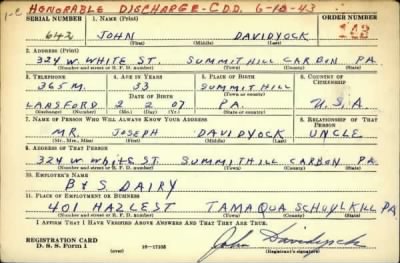 1-C HONORABLE DISCHARGE-CDD. 6-10-43
SERIAL NUMBER 1. NAME (Print) ORDER NUMBER
642 JOHN DAVIDYOCK 142
(First) (Middle) (Last)
2. ADDRESS (Print)
324 W. WHITE ST. SUMMIT HILL CARBON PA.
(Number and street or R. F. D. number) (Town) (County) (State)
3. TELEPHONE 4. AGE IN YEARS 5. PLACE OF BIRTH 6. COUNTRY OF CITIZENSHIP
365M. 33 SUMMIT HILL
DATE OF BIRTH (Town or county)
LANSFORD 2 2 07 PA. U.S.A
(Exchange) (Number) (Mo.) (Day) (Yr.) (State or country)
7. NAME OF PERSON WHO WILL ALWAYS KNOW YOUR ADDRESS 8. RELATIONSHIP OF THAT PERSON
MR. JOSEPH DAVIDYOCK UNCLE.
(Mr., Mrs., Miss) (First) (Middle) (Last)
9. ADDRESS OF THAT PERSON
324 W. White ST. SUMMIT HILL CARBON PA.
(Number and street or R. F. D. number) (Town) (County) (State)
10. EMPLOYER'S NAME
B & S DAIRY
11. PLACE OF EMPLOYMENT OR BUSINESS
401 HAZLE ST TAMAQUA SCHUYLKILL PA
(Number and street or R. F. D. number) (Town) (County) (State)
I AFFIRM THAT I HAVE VERIFIED ABOVE ANSWERS AND THAT THEY ARE TRUE.
REGISTRATION CARD
D. S. S. Form 1 (over) 16-17105 John Davidyock
(Registrant's signature)